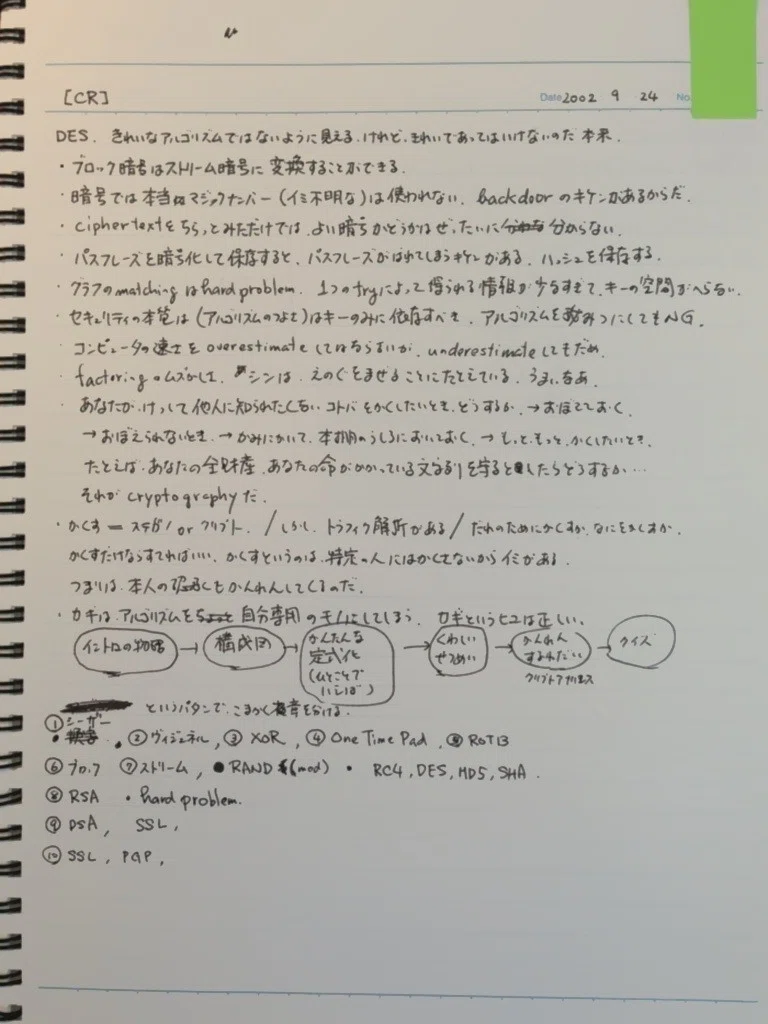 [CR] Date 2002 9 24 No.
DES. きれいなアルゴリズムではないように見える。けれど、きれいであってはいけないのだ 本来.
・ブロック暗号はストリーム暗号に変換することができる.
・暗号では本当はマジックナンバー(イミ不明な)は使われない. backdoorのキケンがあるからだ.
・ciphertextをちらっとみただけでは よい暗号かどうかはぜったいに 分からない.
・パスフレーズを暗号化して保存すると、パスフレーズがばれてしまうキケンがある. ハッシュを保存する.
・グラフのmatchingはhard problem. 1つのtryによって得られる情報が少なすぎて、キーの空間がへらない.
・セキュリティの本質は(アルゴリズムのつよさ)はキーのみに依存すべき. アルゴリズムをひみつにしてもNG.
・コンピュータの速さを overestimate してはならないが、underestimate してもだめ.
・factoring のムズかしさ. シンは、えのぐをまぜることにたとえている. うまいなあ.
・あなたが、けっして他人に知られたくない コトバをかくしたいとき、どうするか. →おぼえておく
→おぼえられないとき. →かみにかいて、本棚のうしろにおいておく → もっと、もっと、かくしたいとき.
たとえば、あなたの全財産、あなたの命がかかっている文字列を守るとしたらどうするか…
それが cryptography だ.
・かくす = ステガノ or クリプト. /しかし、トラフィック解析がある/ だれのためにかくすか、なにをかくすか.
かくすだけならすてればいい. かくすというのは、特定の人にはかくさないからイミがある.
つまりは、本人の確認もかんれんしてくるのだ.
・カギは、アルゴリズムを 自分専用のモノにしてしまう. カギというヒユは正しい.
イントロの物語 → 構成図 → かんたんな定式化(ひとことでいえば) → くわしいせつめい → かんれんするわだい → クイズ
クリプトアナリシス
というパタンで、こまかく章を分ける.
① シーザー
, ② ヴィジュネル, ③ XOR, ④ One Time Pad, ⑤ ROT13
⑥ ブロック ⑦ ストリーム, ● RAND (mod) ・ RC4, DES, MD5, SHA.
⑧ RSA ・hard problem.
⑨ DSA, SSL,
⑩ SSL, PGP,